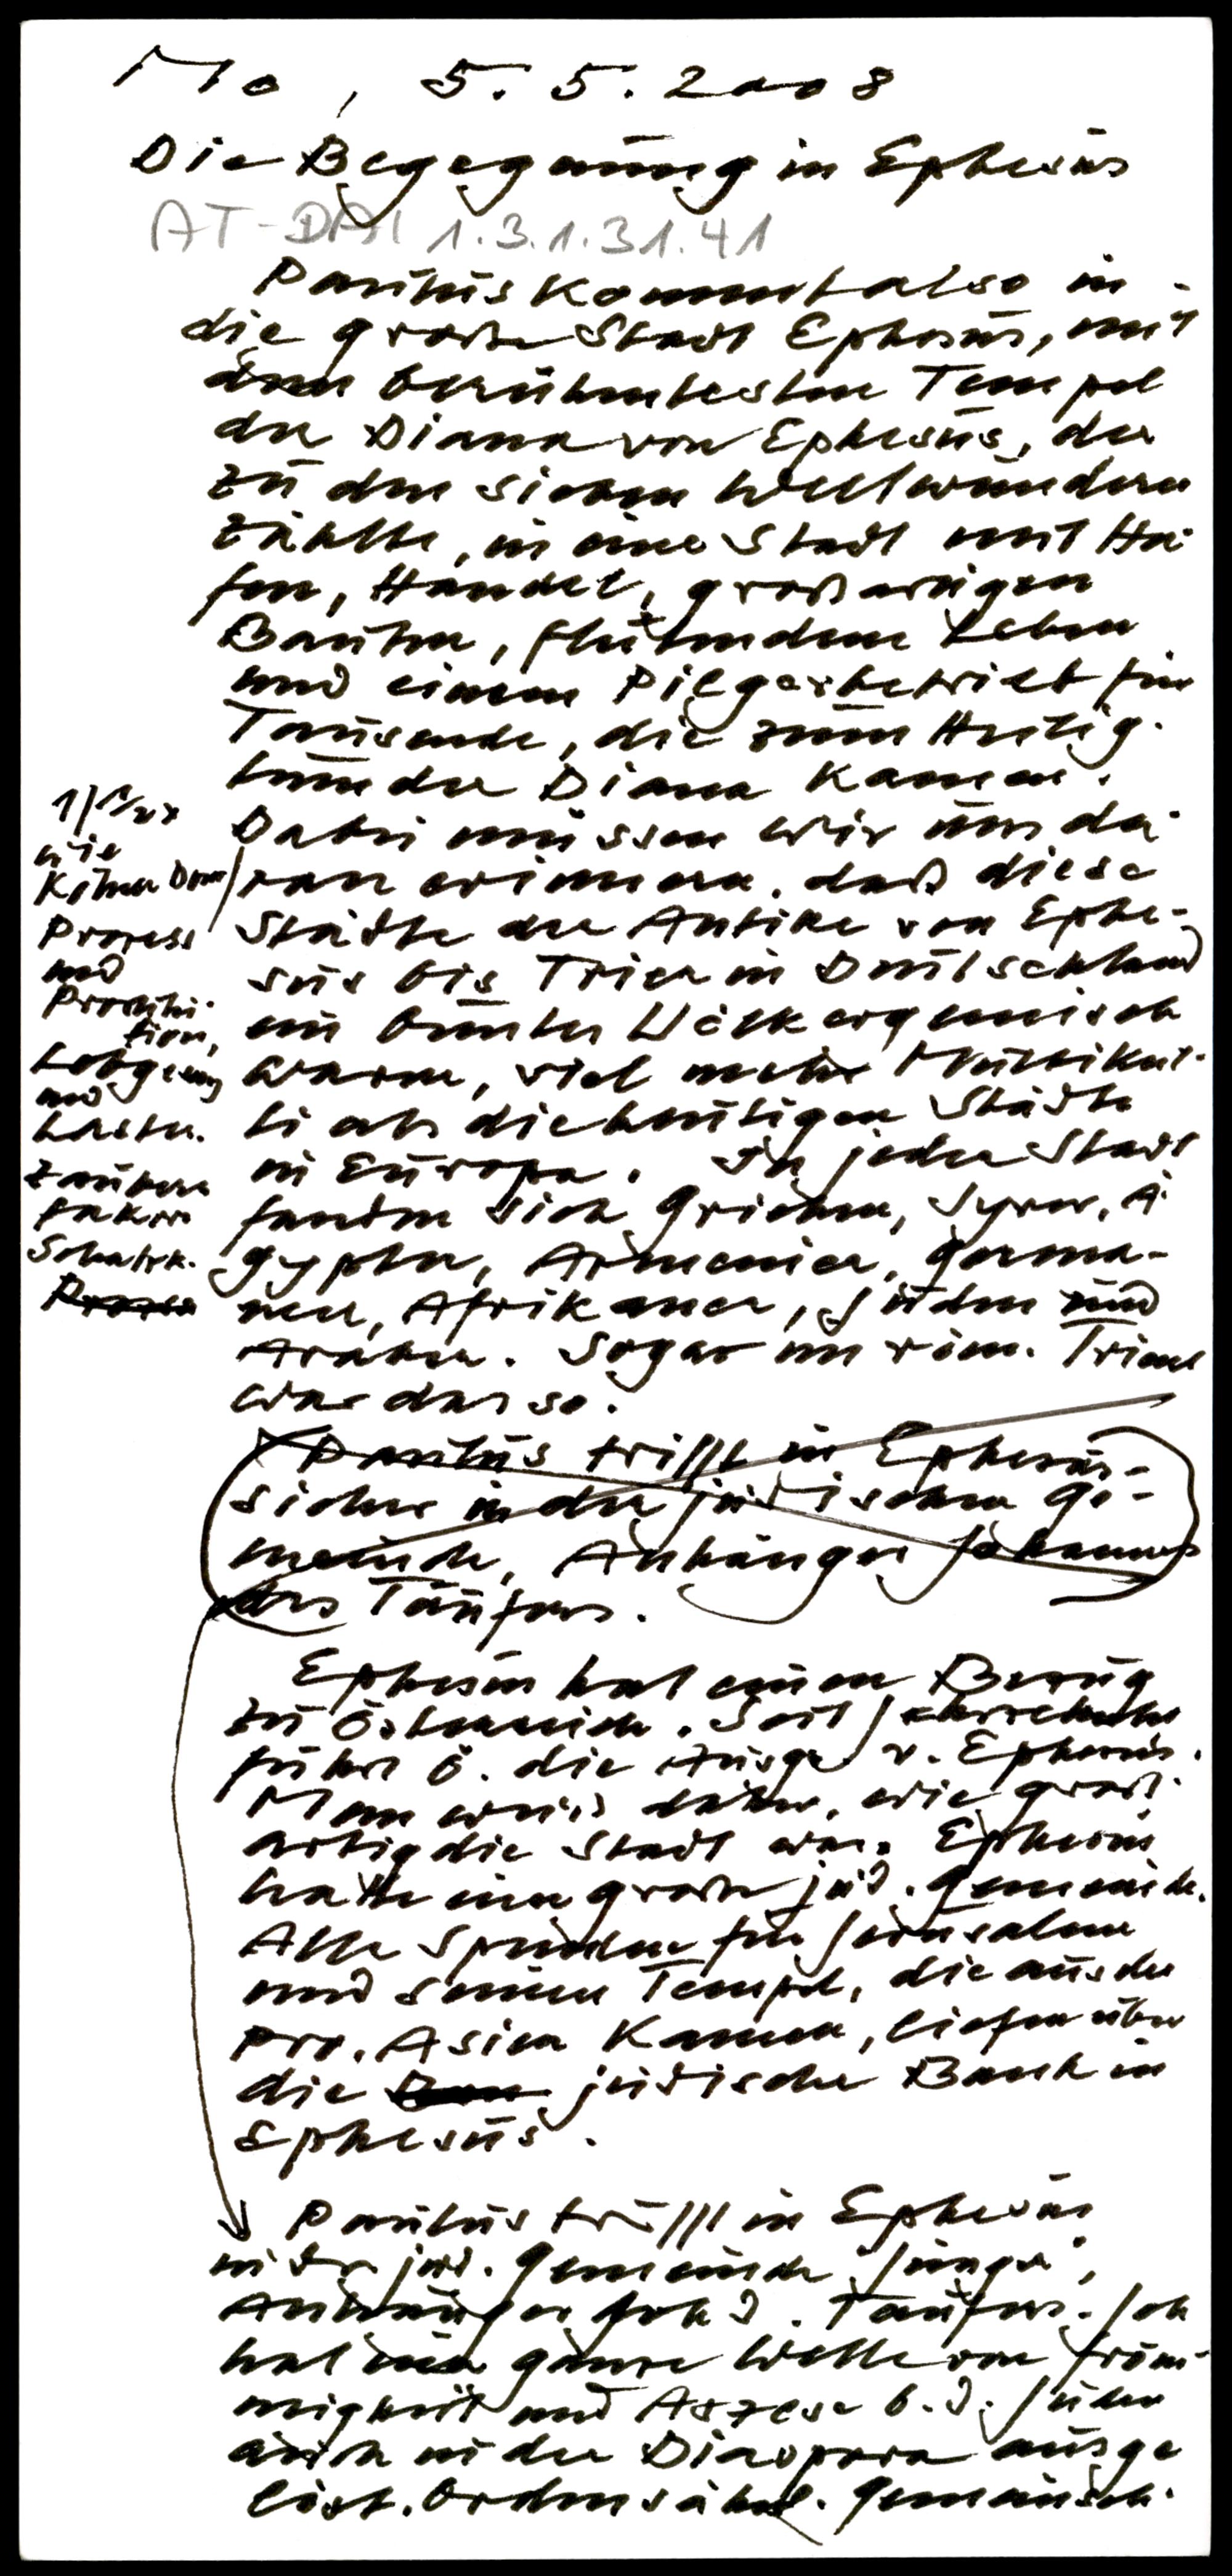 Mo, 5.5.2008
Die Begegnung in Ephesus
AT-DAI 1.3.1.31.41
Paulus kommt also in
die große Stadt Ephesus, mit
dem berühmtesten Tempel
der Diana von Ephesus, der
zu den sieben Weltwundern
zählte, in eine Stadt mit Ha-
fen, Handel, großartigen
Bauten, flutendem Leben
und einem Pilgerbetrieb für
Tausende, die zum Heilig-
tum der Diana kamen.
Dabei müssen wir uns da-
ran erinnern, daß diese
Städte der Antike von Ephe-
sus bis Trier in Deutschland
ein buntes Völkergemisch
waren, viel mehr Multikul-
ti als die heutigen Städte
in Europa. In jeder Stadt
fanden sich Griechen, Syrer, Ä-
gypter, Armenier, Germa-
nen, Afrikaner, Juden und
Araber. Sogar im röm. Trier
war das so.
wie
Kölner Dom
Prozess
und
Prostitu-
tion,
Lobgesang
und
Laster.
Zauberer
Fakire
Scharlat.
Paulus trifft in Ephesus
sicher in der jüdischen Ge-
meinde, Anhänger Johannes
des Täufers.
Ephesus hat einen Bezug
zu Österreich. Seit Jahrzehnten
führt Ö. die Ausgr. v. Ephesus.
Man weiß daher, wie groß-
artig die Stadt war. Ephesus
hatte eine große jüd. Gemeinde.
Alle Spenden für Jerusalem
und seinen Tempel, die aus der
Pro. Asien kamen, liefen über
die jüdische Bank in
Ephesus.
Paulus trifft in Ephesus
in der jüd. Gemeinde "Jünger",
Anhänger Joh d. Täufers. Joh
hat eine ganze Welle von Fröm-
migkeit und Aszese b. d. Juden
auch in der Diaspora ausge
löst. Ordensähnl. Gemeinsch.